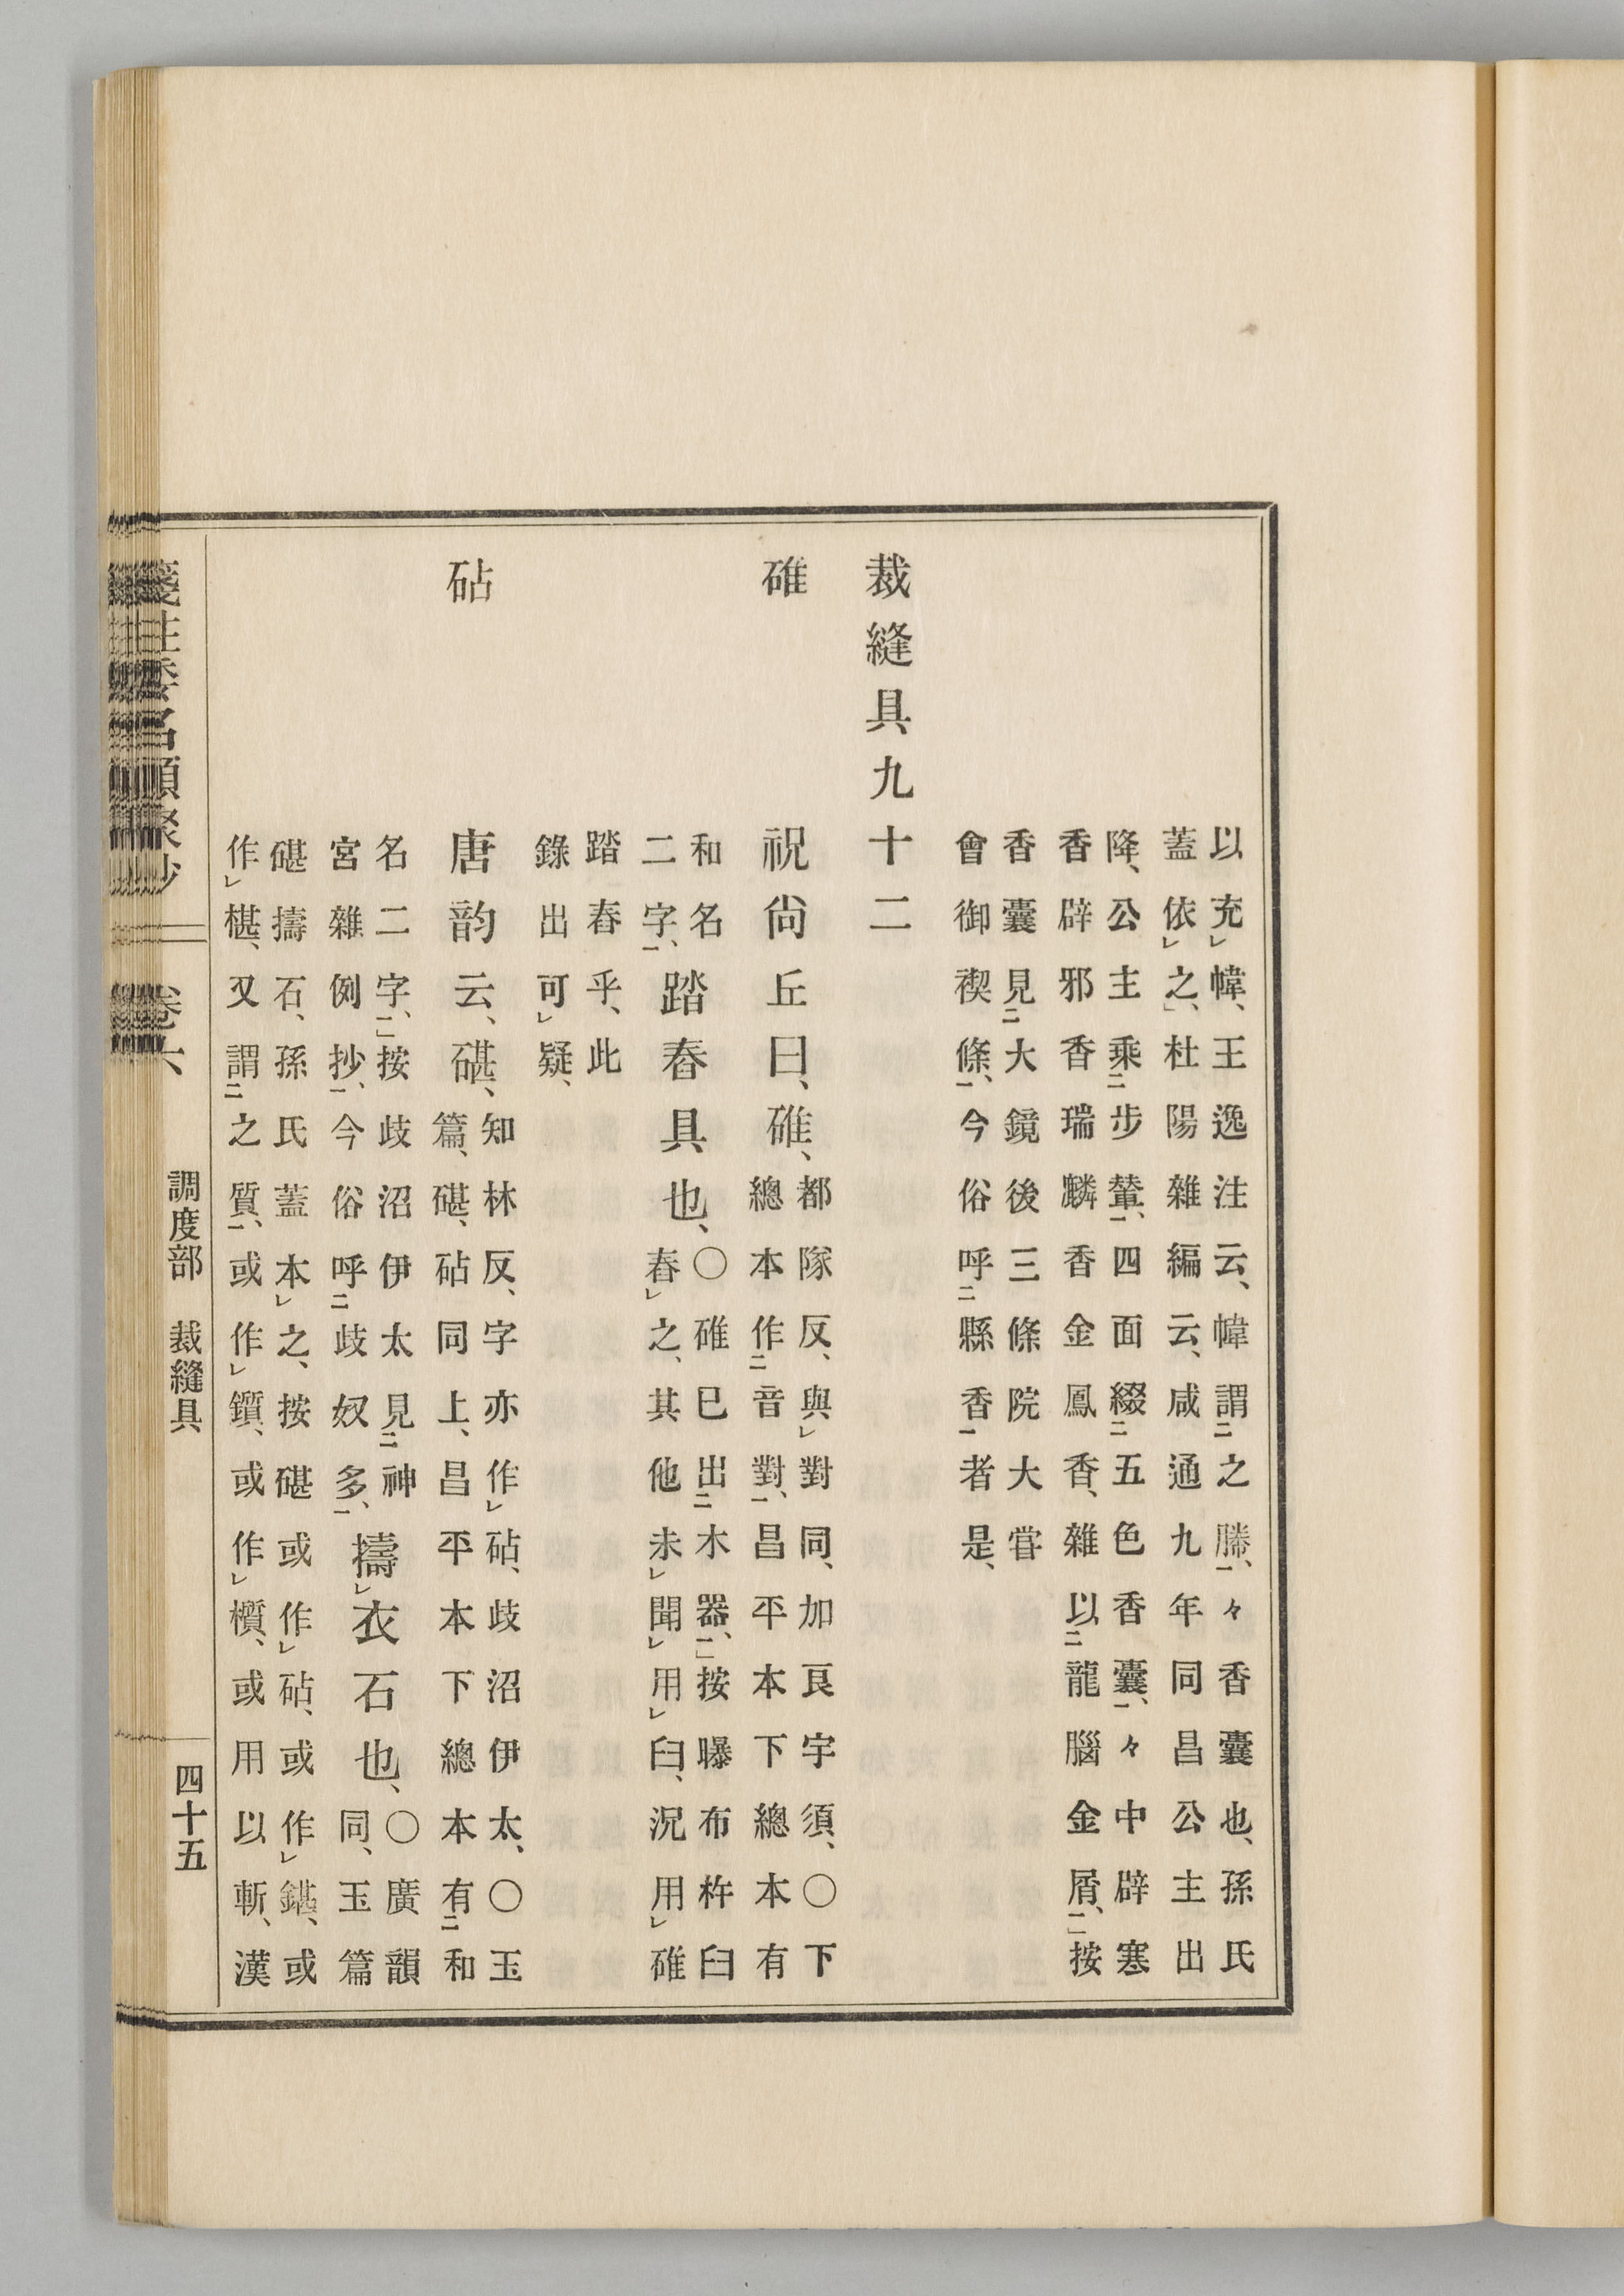 以充㆑幃、王逸注云、幃謂㆓之幐㆒、々香囊也、孫氏
蓋依㆑之、」杜陽雜編云、咸通九年同昌公主出
降、公主乘㆓步輦㆒、四面綴㆓五色香囊㆒、々中辟寒
香辟邪香瑞麟香金鳳香、雜以㆓龍腦金屑㆒、」按
香囊見㆓大鏡後三條院大甞
會御禊條㆒、今俗呼㆓縣香㆒者是、
裁縫具九十二
碓
祝尙丘曰、碓、
都隊反、與㆑對同、加良宇須、〇下
總本作㆓音對㆒、昌平本下總本有
和名
二字㆒、
踏舂具也、
〇碓已出㆓木器㆒、」按曝布杵臼
舂㆑之、其他未㆑聞㆑用㆑臼、況用㆑碓
踏舂乎、此
錄出可㆑疑、
砧
唐韵云、碪、
知林反、字亦作㆑砧、歧沼伊太、〇玉
篇、碪、砧同上、昌平本下總本有㆓和
名二字㆒、」按歧沼伊太見㆓神
宮雜例抄㆒、今俗呼㆓歧奴多㆒、
擣㆑衣石也、
〇廣韻
同、玉篇
碪擣石、孫氏蓋本㆑之、按碪或作㆑砧、或作㆑䤾、或
作㆑椹、又謂㆓之質㆒、或作㆑鑕、或作㆑櫍、或用以斬、漢
箋注倭名類聚抄 卷六 調度部 裁縫具 四十五